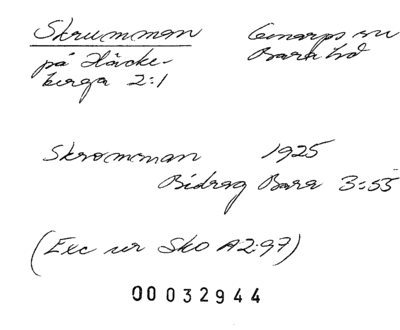 Skrumman Genarps sn
på Häcke- Bara hd
berga 2:1
Skrømman 1925
Bidrag Bara 3:55
(Exc ur Sko A2:97)
00032944